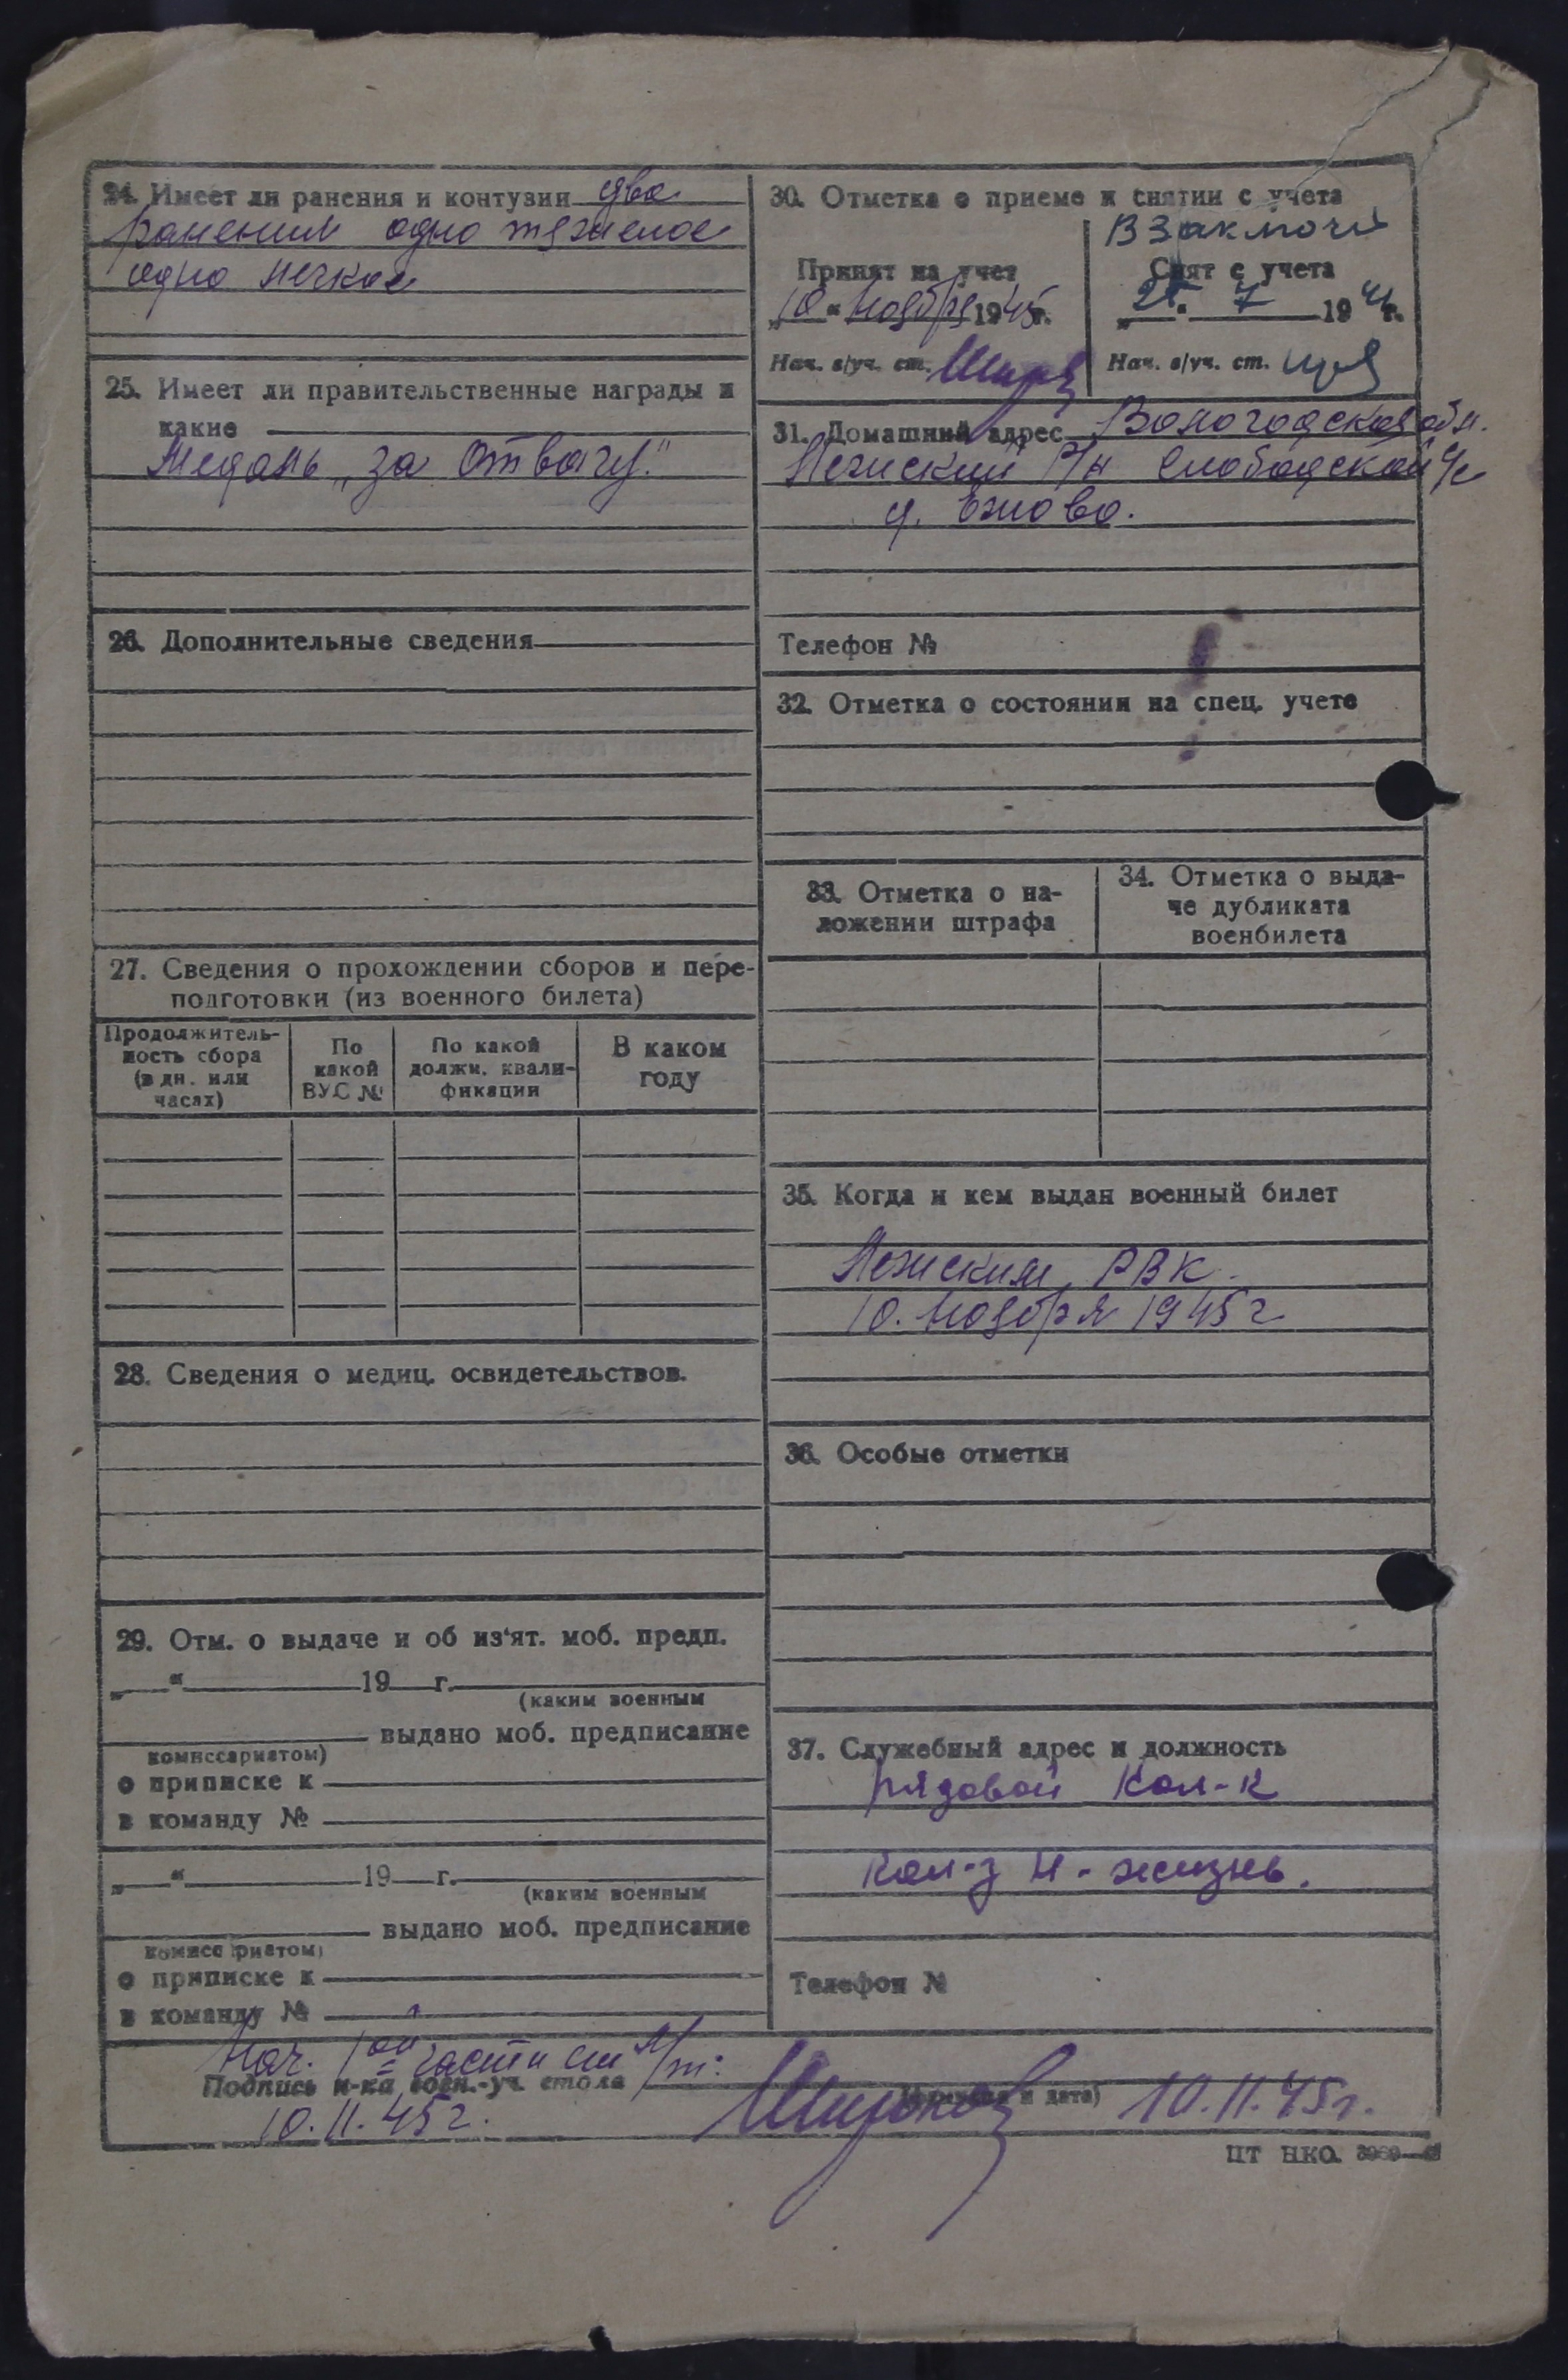 24. Имеет ли ранения и контузии два
ранения одно тяжелое
одно легкое
25. Имеет ли правительственные награды и
какие
Медаль „за Отвагу."
26. Дополнительные сведения
27. Сведения о прохождении сборов и пере-
подготовки (из военного билета)
Продолжитель-
ность сбора
(в дн. или
часах)
По
какой
ВУС №
По какой
должн. квали-
фикации
В каком
году
28. Сведения о медиц. освидетельствов.
29. Отм. о выдаче и об из'ят. моб. предп.
„ “ 19 г.
(каким военным
выдано моб. предписание
комиссариатом)
о приписке к
в команду №
„ “ 19 г.
(каким военным
выдано моб. предписание
комиссариатом)
о приписке к
в команду №
30. Отметка о приеме и снятии с учета
Принят на учет
„10“ ноября 1945г.
Нач. в/уч. ст.
В Заключ
Снят с учета
7 19 г.
Нач. в/уч. ст.
31. Домашний адрес Вологодская обл.
Лежский р/н Слободской с/с
д. Ежово.
Телефон №
32. Отметка о состоянии на спец. учете
33. Отметка о на-
ложении штрафа
34. Отметка о выда-
че дубликата
военбилета
35. Когда и кем выдан военный билет
Лежским РВК.
10. Ноября 1945г
36. Особые отметки
37. Служебный адрес и должность
рядовой Кол-к
кол-з Н-жизнь.
Телефон №
Нач. 1ой части
Подпись н-ка воен.-уч. стола
и дата)
10.11.45г.
10.11.45г.
ЦТ НКО.